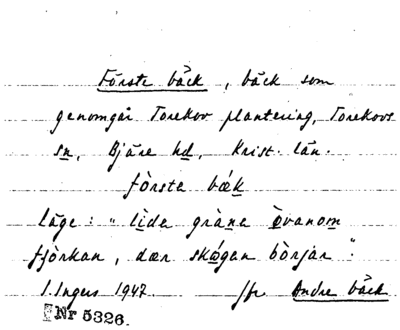 Förste bäck, bäck som
genomgår Torekov plantering, Torekovs
sn, Bjäre hd, Krist. län.
förste bæk
Läge: "lide gràne òvanom
fjörkan, dær skógen börjar".
I. Ingers 1947. Jfr Andre bäck
Nr 5326.